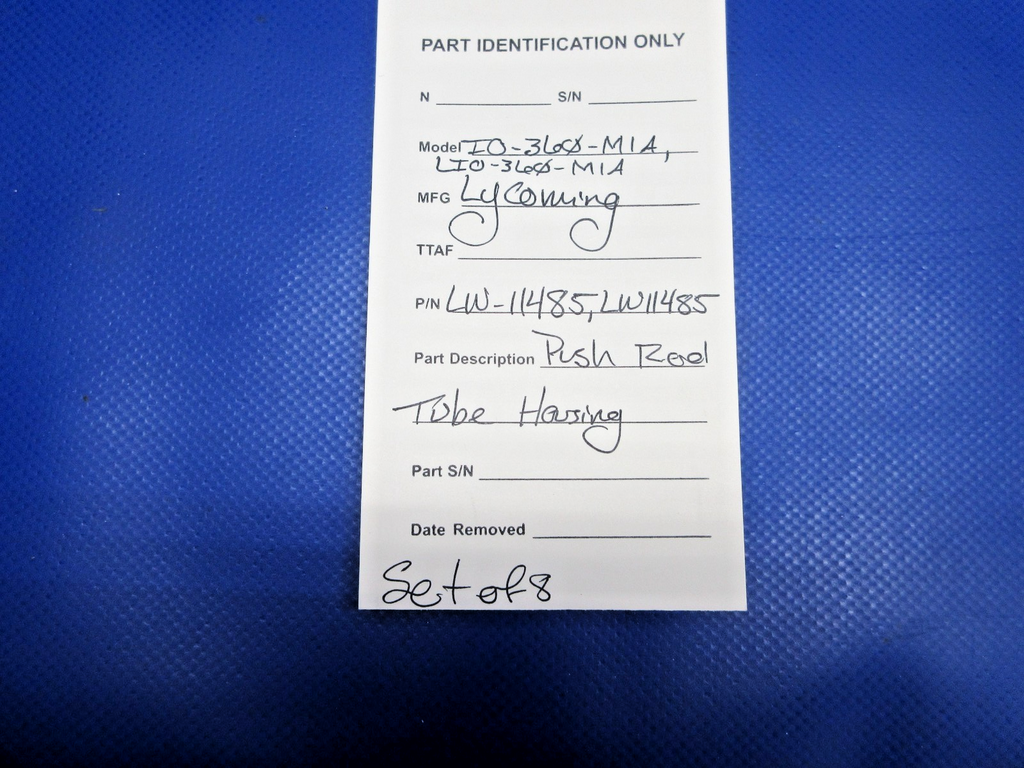 PART IDENTIFICATION ONLY
N S/N
Model IO-360-M1A,
LIO-360-M1A
MFG Lycoming
TTAF
P/N LW-11485, LW11485
Part Description Push Rod
Tube Housing
Part S/N
Date Removed
Set of 8